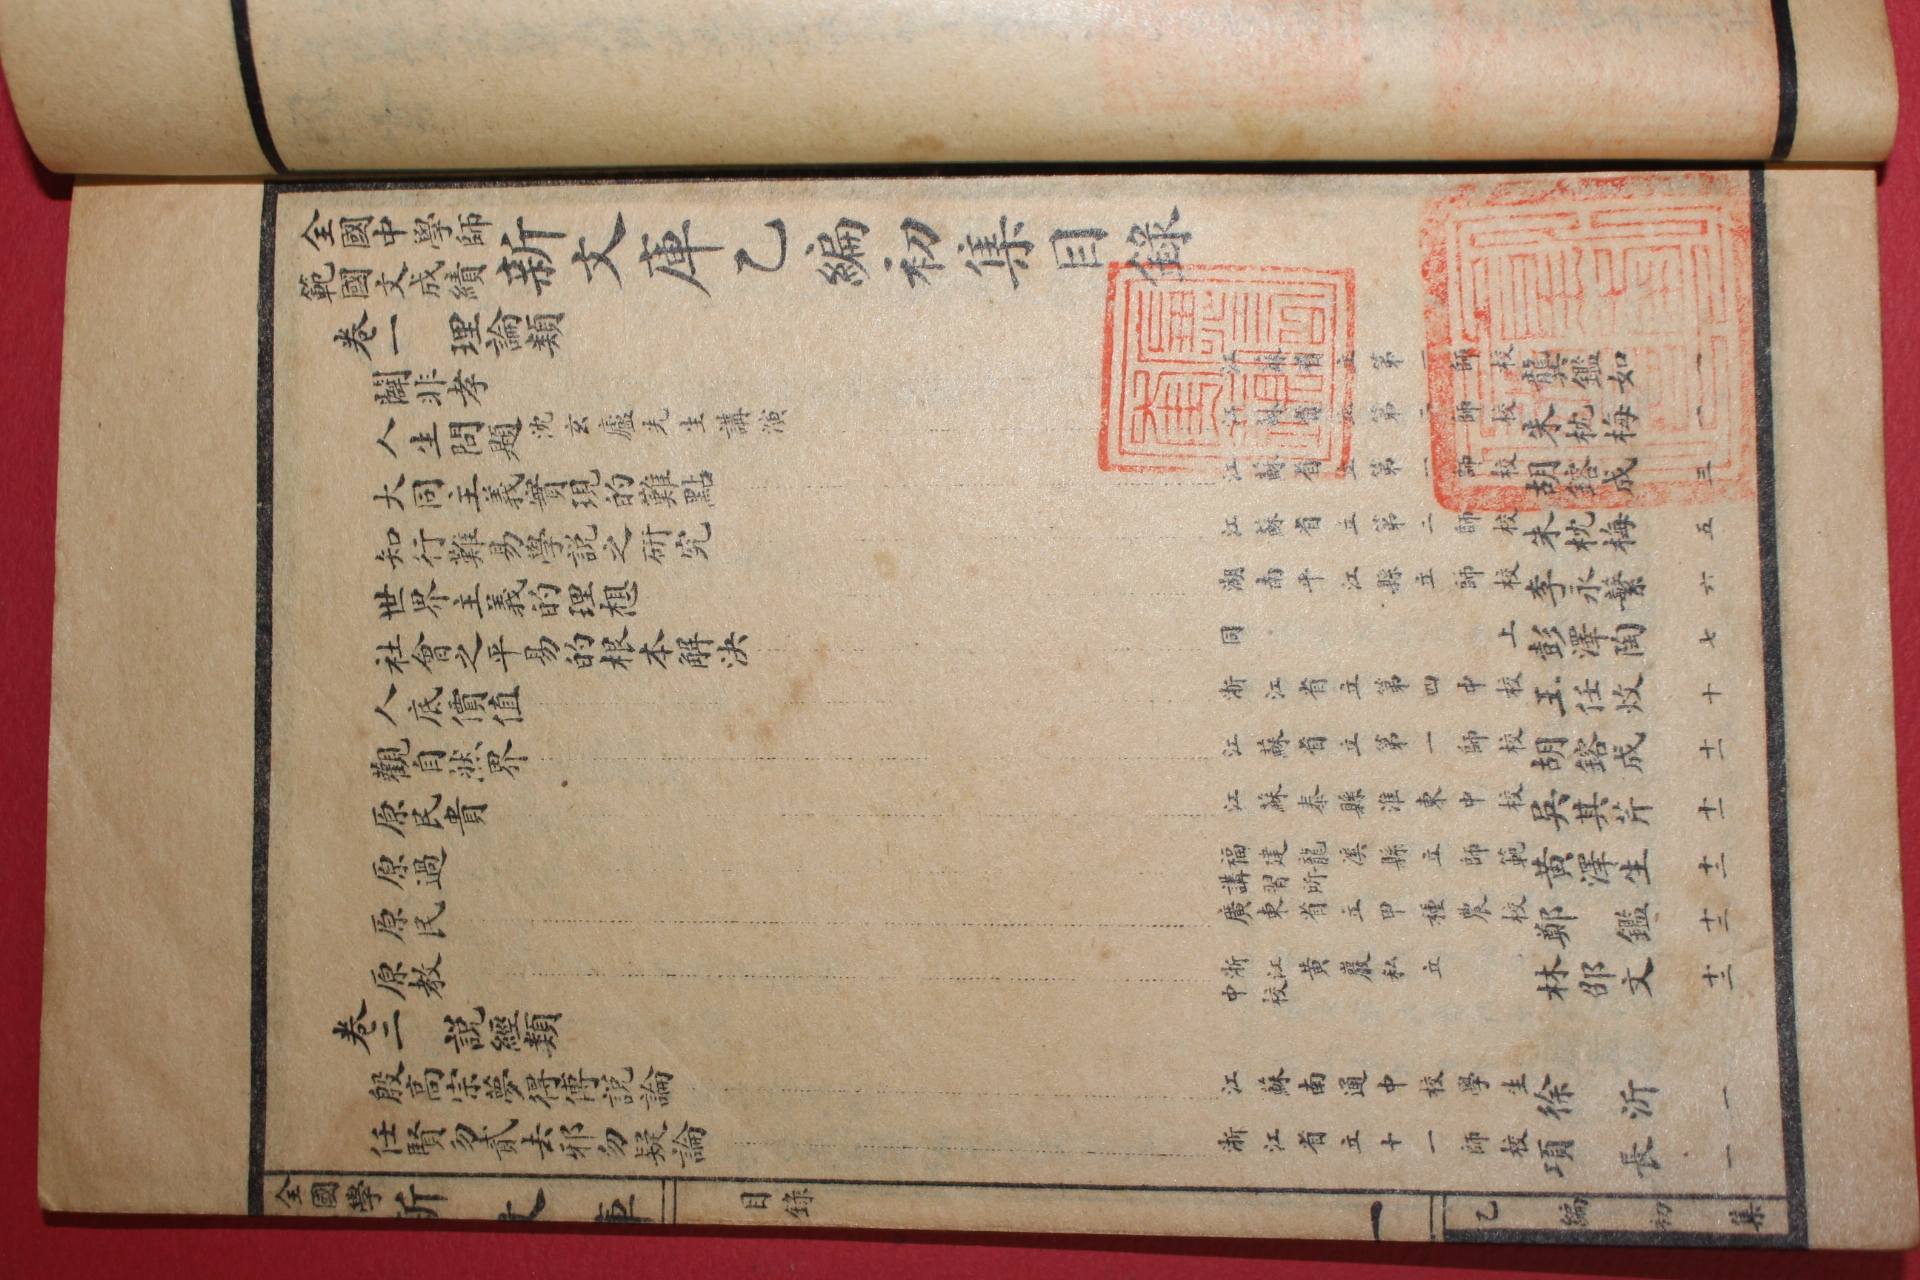 全國中學師範國文成績新文庫乙編初集目錄
卷一 理論類
闢非孝 江蘇省立第一師校 龔鑑如 一
人生問題 沈玄廬先生講演 江蘇省立第二師校 朱枕梅 一
大同主義實現的難點 江蘇省立第一師校 胡鎔成 三
知行難易學説之研究 江蘇省立第二師校 朱枕梅 五
世界主義的理想 湖南平江縣立師校 李永繁 六
社會之平易的根本解決 同上 彭澤陶 七
人底價值 浙江省立第四中校 王任炆 十
觀自然界 江蘇省立第一師校 胡鎔成 十一
原民貴 江蘇泰縣淮東中校 吳其芹 十一
原過 福建龍溪縣立師範講習所 黃澤生 十二
原民 廣東省立甲種農校 鄭鑑 十二
原教 浙江黃巖私立中校 林邵文 十三
卷二 説經類
殷高宗夢得傅説論 江蘇南通中校學生 徐沂 一
任賢勿貳去邪勿疑論 浙江省立十一師校 項長 一
全國學 新文庫 目錄 一 乙編初集